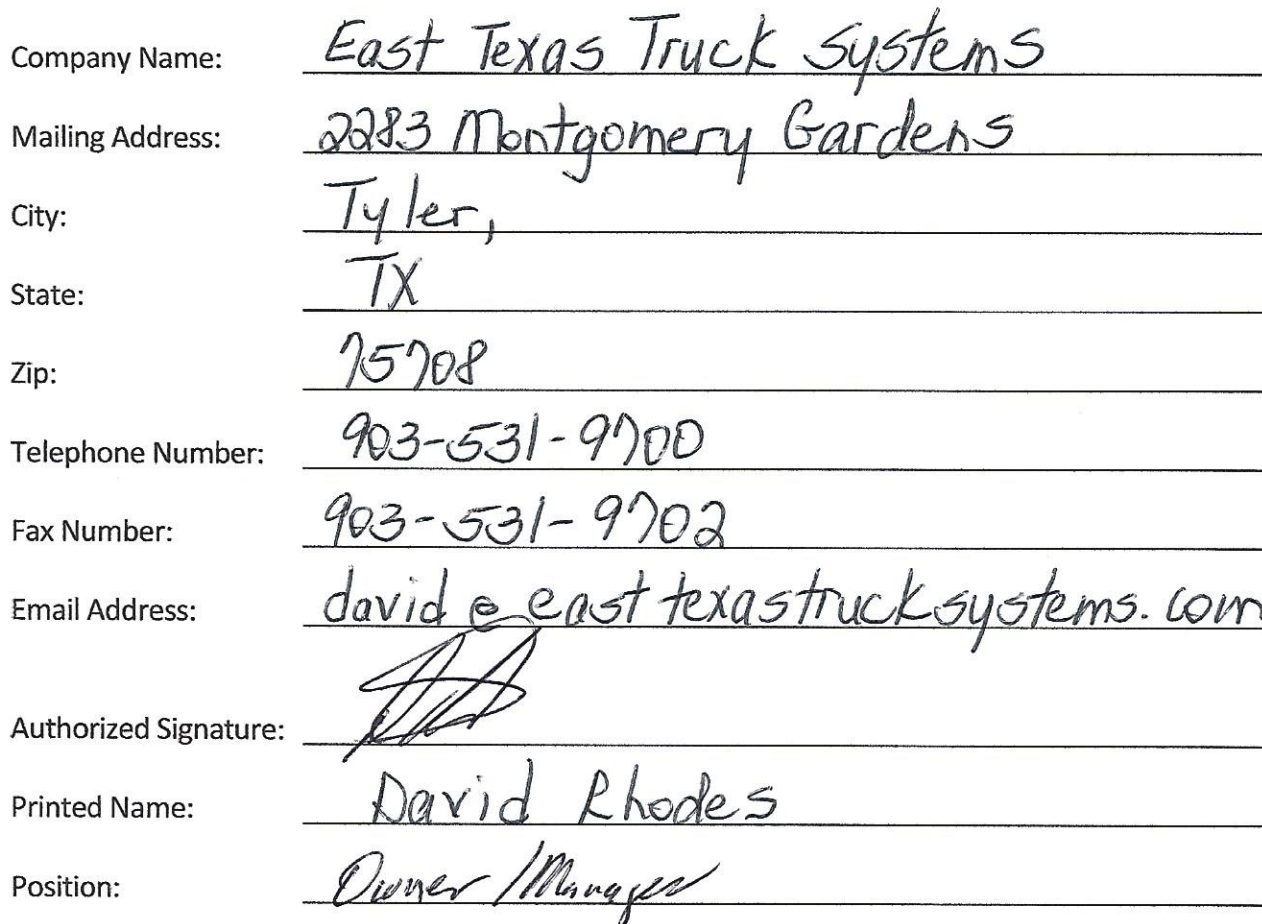 Company Name: East Texas Truck Systems
Mailing Address: 2283 Montgomery Gardens
City: Tyler,
State: TX
Zip: 75708
Telephone Number: 903-531-9700
Fax Number: 903-531-9702
Email Address: david@easttexastrucksystems.com
Authorized Signature:
Printed Name: David Rhodes
Position: Owner/Manager